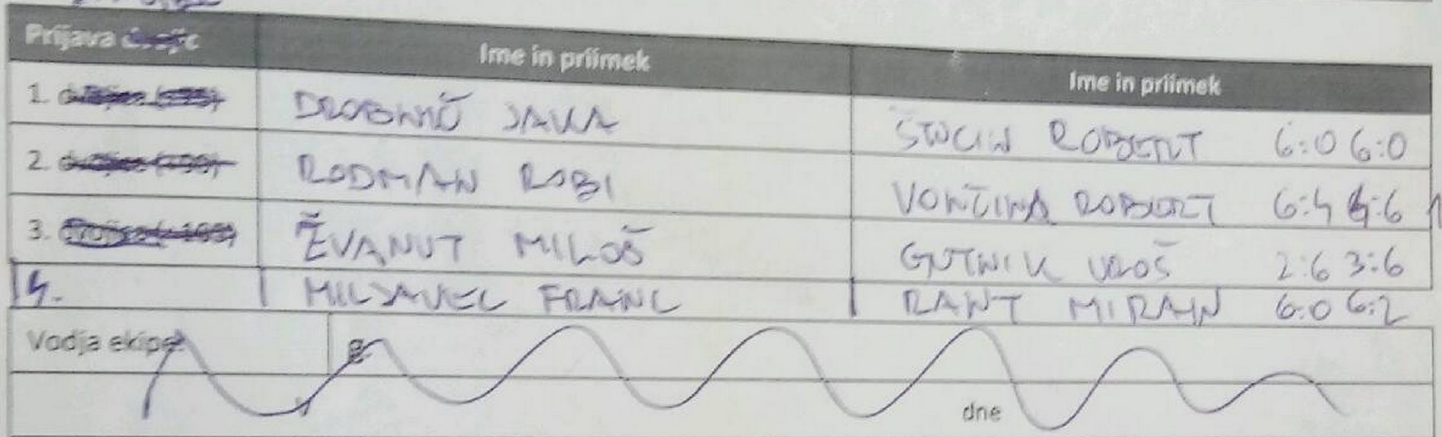 Prijava
Ime in priimek Ime in priimek
1. DROBNIČ JAKA STUCIN ROBERT 6:0 6:0
2. RODMAN ROBI VONČINA ROBERT 6:4 4:6
3. ŽVANUT MILOŠ GUTNIK UROŠ 2:6 3:6
4. MILJAVEC FRANC RANT MIRAN 6:0 6:2
Vodja ekipe:
dne